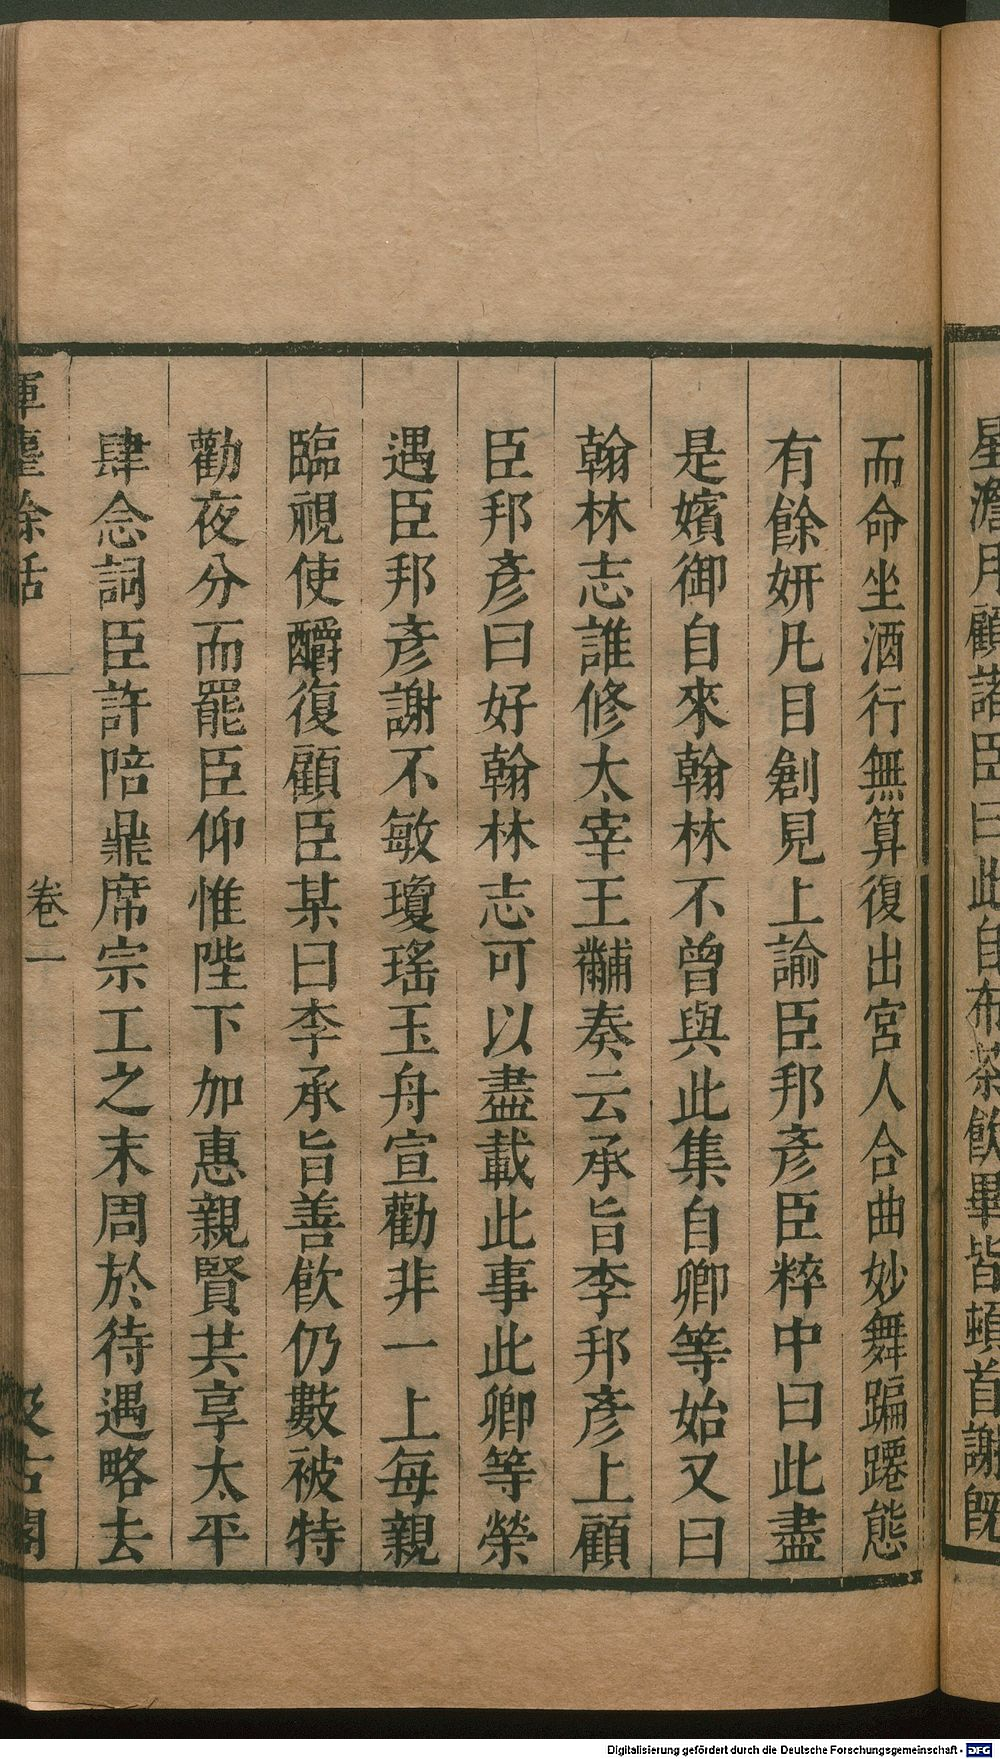 星澹月顧諸臣曰此自布茶飲畢皆頓首謝旣
而命坐酒行無算復出宮人合曲妙舞蹁躚態
有餘妍凡目創見上諭臣邦彥臣粹中曰此盡
是嬪御自來翰林不曾與此集自卿等始又曰
翰林志誰修太宰王黼奏云承旨李邦彥上顧
臣邦彥曰好翰林志可以盡載此事此卿等榮
遇臣邦彥謝不敏瓊瑤玉舟宣勸非一上每親
臨視使釂復顧臣某曰李承旨善飲仍數被特
勸夜分而罷臣仰惟陛下加惠親賢共享太平
肆念詞臣許陪鼎席宗工之末周於待遇略去
揮麈餘話 卷一 汲古閣
Digitalisierung gefördert durch die Deutsche Forschungsgemeinschaft - DFG